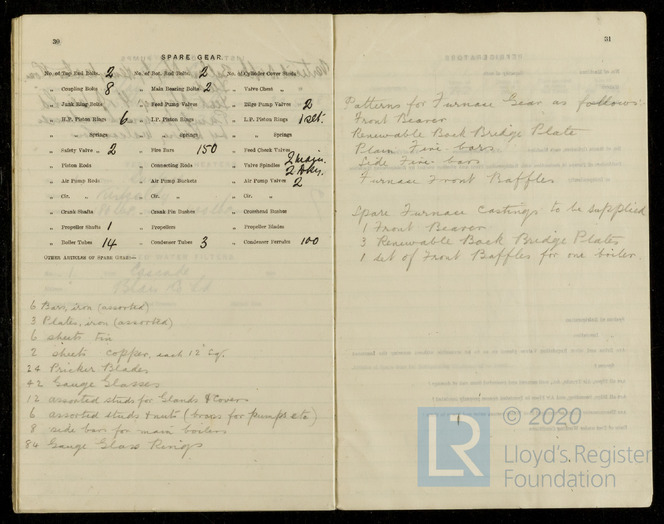 30
SPARE GEAR.
No. of Top End Bolts 2 No. of Bot. End Bolts 2 No. of Cylinder Cover Studs
„ Coupling Bolts 8 „ Main Bearing Bolts 2 „ Valve Chest „
„ Junk Ring Bolts „ Feed Pump Valves „ Bilge Pump Valves 2
„ H.P. Piston Rings 6 „ I.P. Piston Rings „ L.P. Piston Rings 1 set.
„ „ Springs „ „ Springs „ „ Springs
„ Safety Valve „ 2 „ Fire Bars 150 „ Feed Check Valves
„ Piston Rods „ Connecting Rods „ Valve Spindles
„ Air Pump Rods „ Air Pump Buckets „ Air Pump Valves 2
„ Cir. „ „ Cir. „ „ Cir. „
„ Crank Shafts „ Crank Pin Bushes „ Crosshead Bushes
„ Propeller Shafts 1 „ Propellers „ Propeller Blades
„ Boiler Tubes 14 „ Condenser Tubes 3 „ Condenser Ferrules 100
OTHER ARTICLES OF SPARE GEAR:—
6 Bars, iron (assorted)
3 Plates, iron (assorted)
6 sheets tin
2 sheets copper, each 12" sq.
24 Pricker Blades
42 Gauge Glasses
12 assorted studs for Glands & Covers
6 assorted studs & nuts ( for pumps etc)
8 side bars for main boilers
84 Gauge Glass Rings
31
Patterns for Furnace Gear as follows:
Front Bearer
Renewable Back Bridge Plate
Plain Fire bars
Side Fire bars
Furnace Front Baffles
Spare Furnace Castings to be supplied
1 Front Bearer
3 Renewable Back Bridge Plates
1 set of Front Baffles for one boiler.
LR
© 2020
Lloyd's Register
Foundation